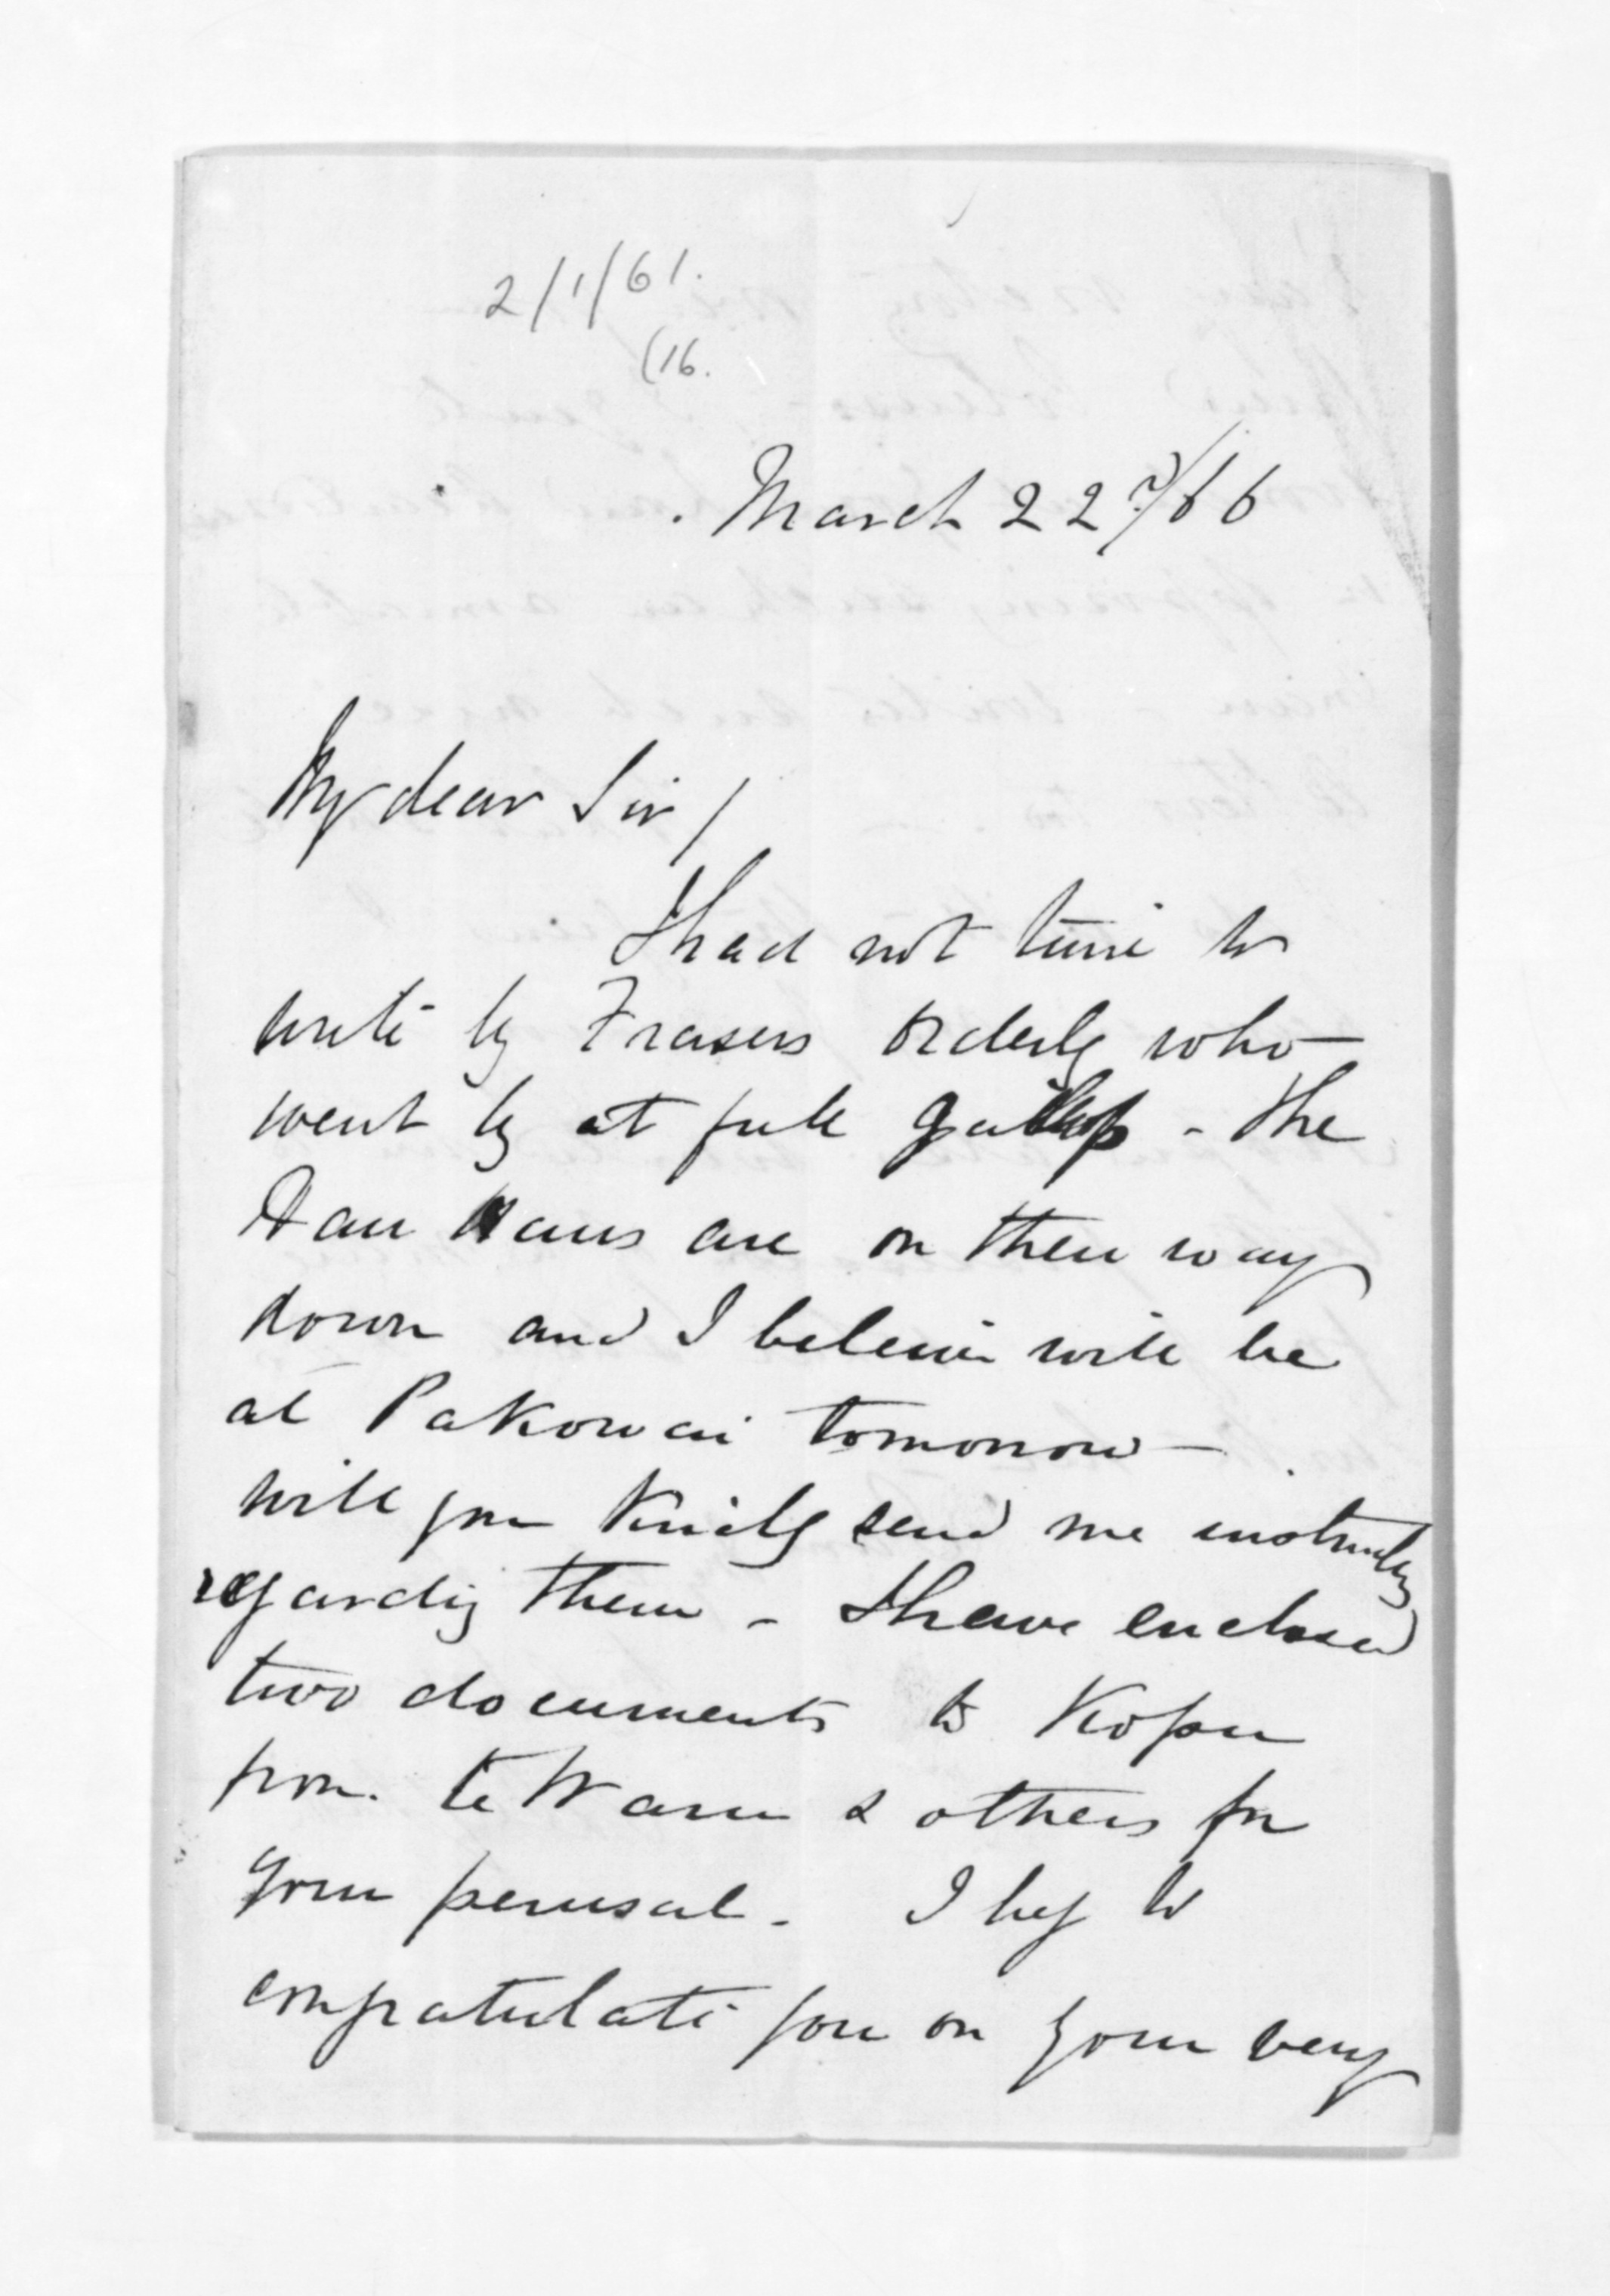 2/1/61.
(16.
March 22nd/66
My dear Sir/
I had not time to
write by Frasers orderly who
went by at full gallop - The
Hau Haus are on their way
down and I believe will be
at Pakowai tomorrow -
will you kindly send me instructions
regarding them - I have enclosed
two documents to Kopu
from te Waru & others for
your perusal - I beg to
congratulate you on your very